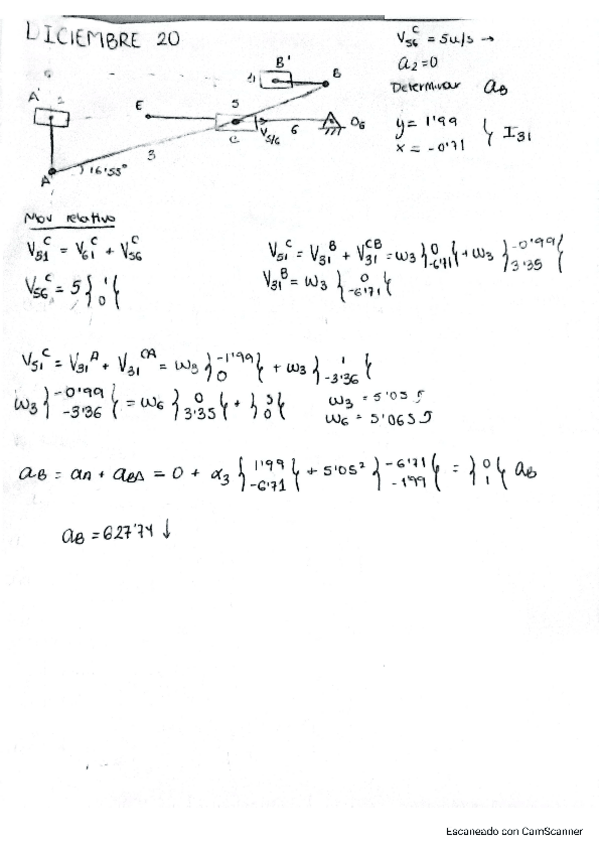 DICIEMBRE 20
V56^C = 5u/s →
a2=0
Determinar aB
y = 1'99
x = -0'71 } I31
B'
4
B
A'
2
E
5
C
V5/6
6
O6
3
A
16'55°
Mov relativo
V51^C = V61^C + V56^C
V56^C = 5 } 1 0 {
V51^C = V31^B + V31^CB = ω3 } 0 -6'71 { + ω3 } -0'99 3'35 {
V31^B = ω3 } 0 -6'71 {
V51^C = V31^A + V31^CA = ω3 } -1'99 0 { + ω3 } 1 -3'36 {
ω3 } -0'99 -3'36 { = ω6 } 0 3'35 { + } 5 0 {
ω3 = 5'05
ω6 = 5'065
aB = aA + aBA = 0 + α3 } 1'99 -6'71 { + 5'05² } -6'71 -1'99 { = } 0 1 { aB
aB = 627'74 ↓
Escaneado con CamScanner